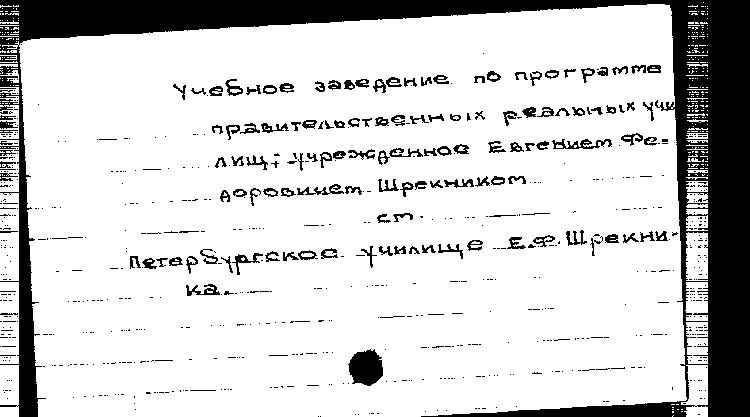 Учебное заведение по программе
правительственных реальных учи
лищ, учрежденное Евгением Фе-
доровичем Шрекником
см.
Петербургское училище Е.Ф. Шрекни-
ка.